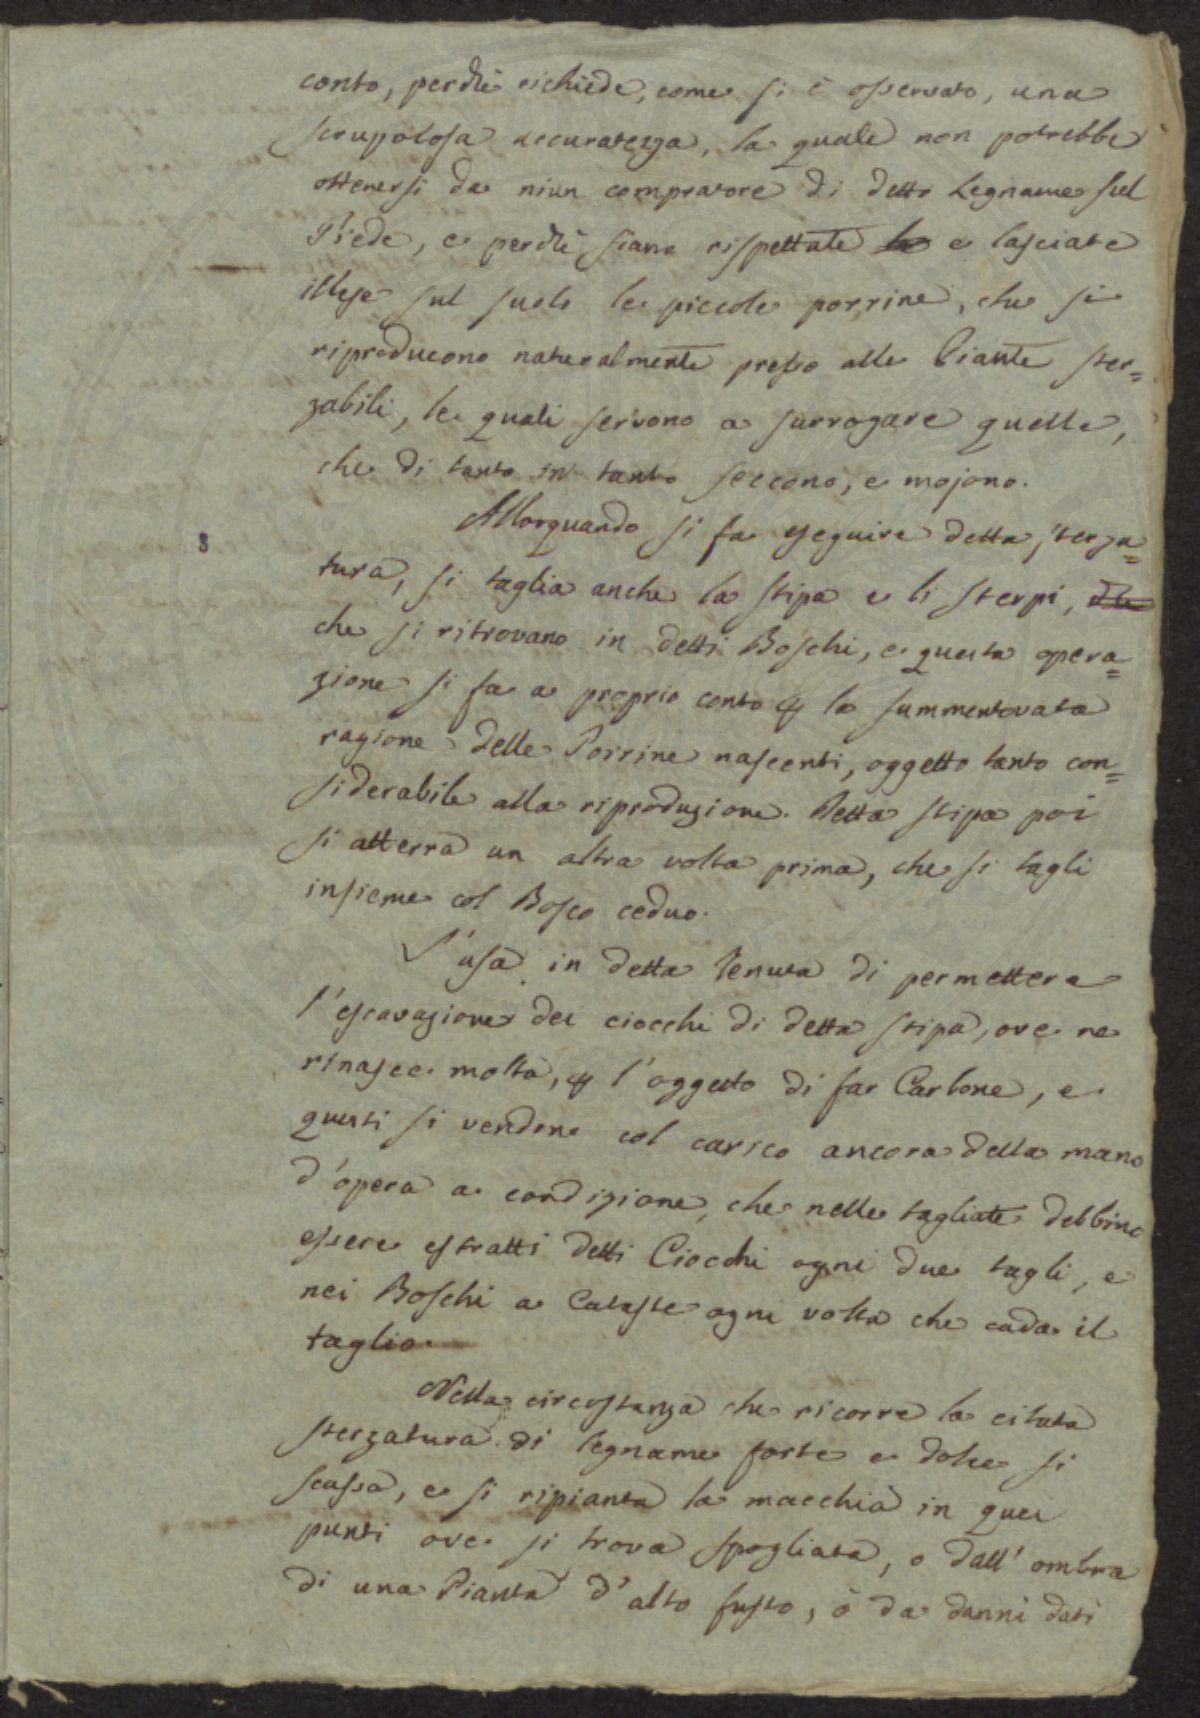 conto, perchè richiede, come si è osservato, una
scrupolosa accuratezza, la quale non potrebbe
ottenersi da niun compratore di detto Legname sul
Piede, e perchè siano rispettate le e lasciate
illese sul suolo le piccole porrine, che si
riproducono naturalmente presso alle Piante ster=
zabili, le quali servono a surrogare quelle,
che di tanto in tanto seccono, e mojono.
Allorquando si fa eseguire detta sterza=
8
tura, si taglia anche la stipa e li sterpi, che
che si ritrovano in detti Boschi, e questa opera=
zione si fa a proprio conto p la summentovata
ragione delle Porrine nascenti, oggetto tanto con=
siderabile alla riproduzione. Detta stipa poi
si atterra un altra volta prima, che si tagli
insieme col Bosco ceduo.
S'usa in detta Tenuta di permettere
l'escavazione dei ciocchi di detta stipa, ove ne
rinasce molta, p l'oggetto di far Carbone, e
questi si vendono col carico ancora della mano
d'opera a condizione, che nelle tagliate debbino
essere estratti detti Ciocchi ogni due tagli, e
nei Boschi a Cataste ogni volta che cada il
taglio.
Nella circostanza che ricorre la citata
sterzatura di legname forte e dolce si
scassa, e si ripianta la macchia in quei
punti ove si trova spogliata, o dall' ombra
di una Pianta d'alto fusto, ò da danni dati